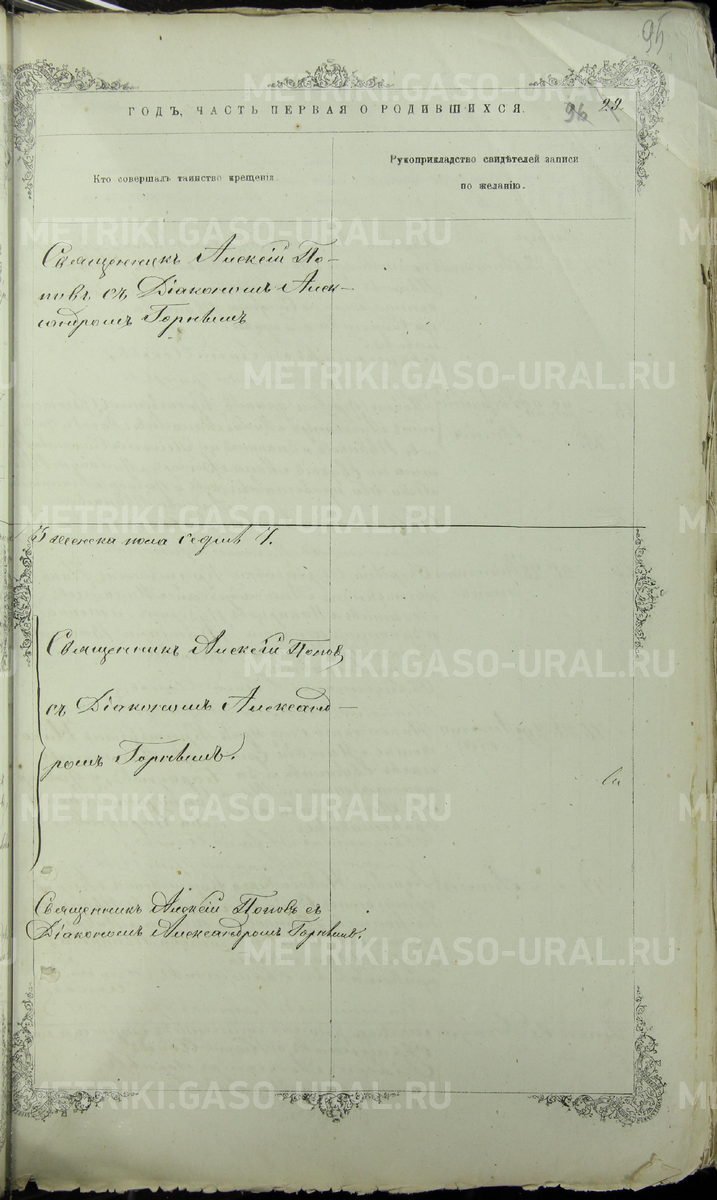 95
ГОДЪ, ЧАСТЬ ПЕРВАЯ О РОДИВШИХСЯ.
96 29
Кто совершалъ таинство крещенія.
Рукоприкладство свидѣтелей записи
по желанію.
Священникъ Алексій По-
повъ съ Діакономъ Алек-
сандромъ Горнымъ
женска пола седмь 7.
Священникъ Алексій Поповъ
съ Діакономъ Александ-
ромъ Горнымъ.
Священникъ Алексій Поповъ съ
Діакономъ Александромъ Горнымъ.
METRIKI.GASO-URAL.RU